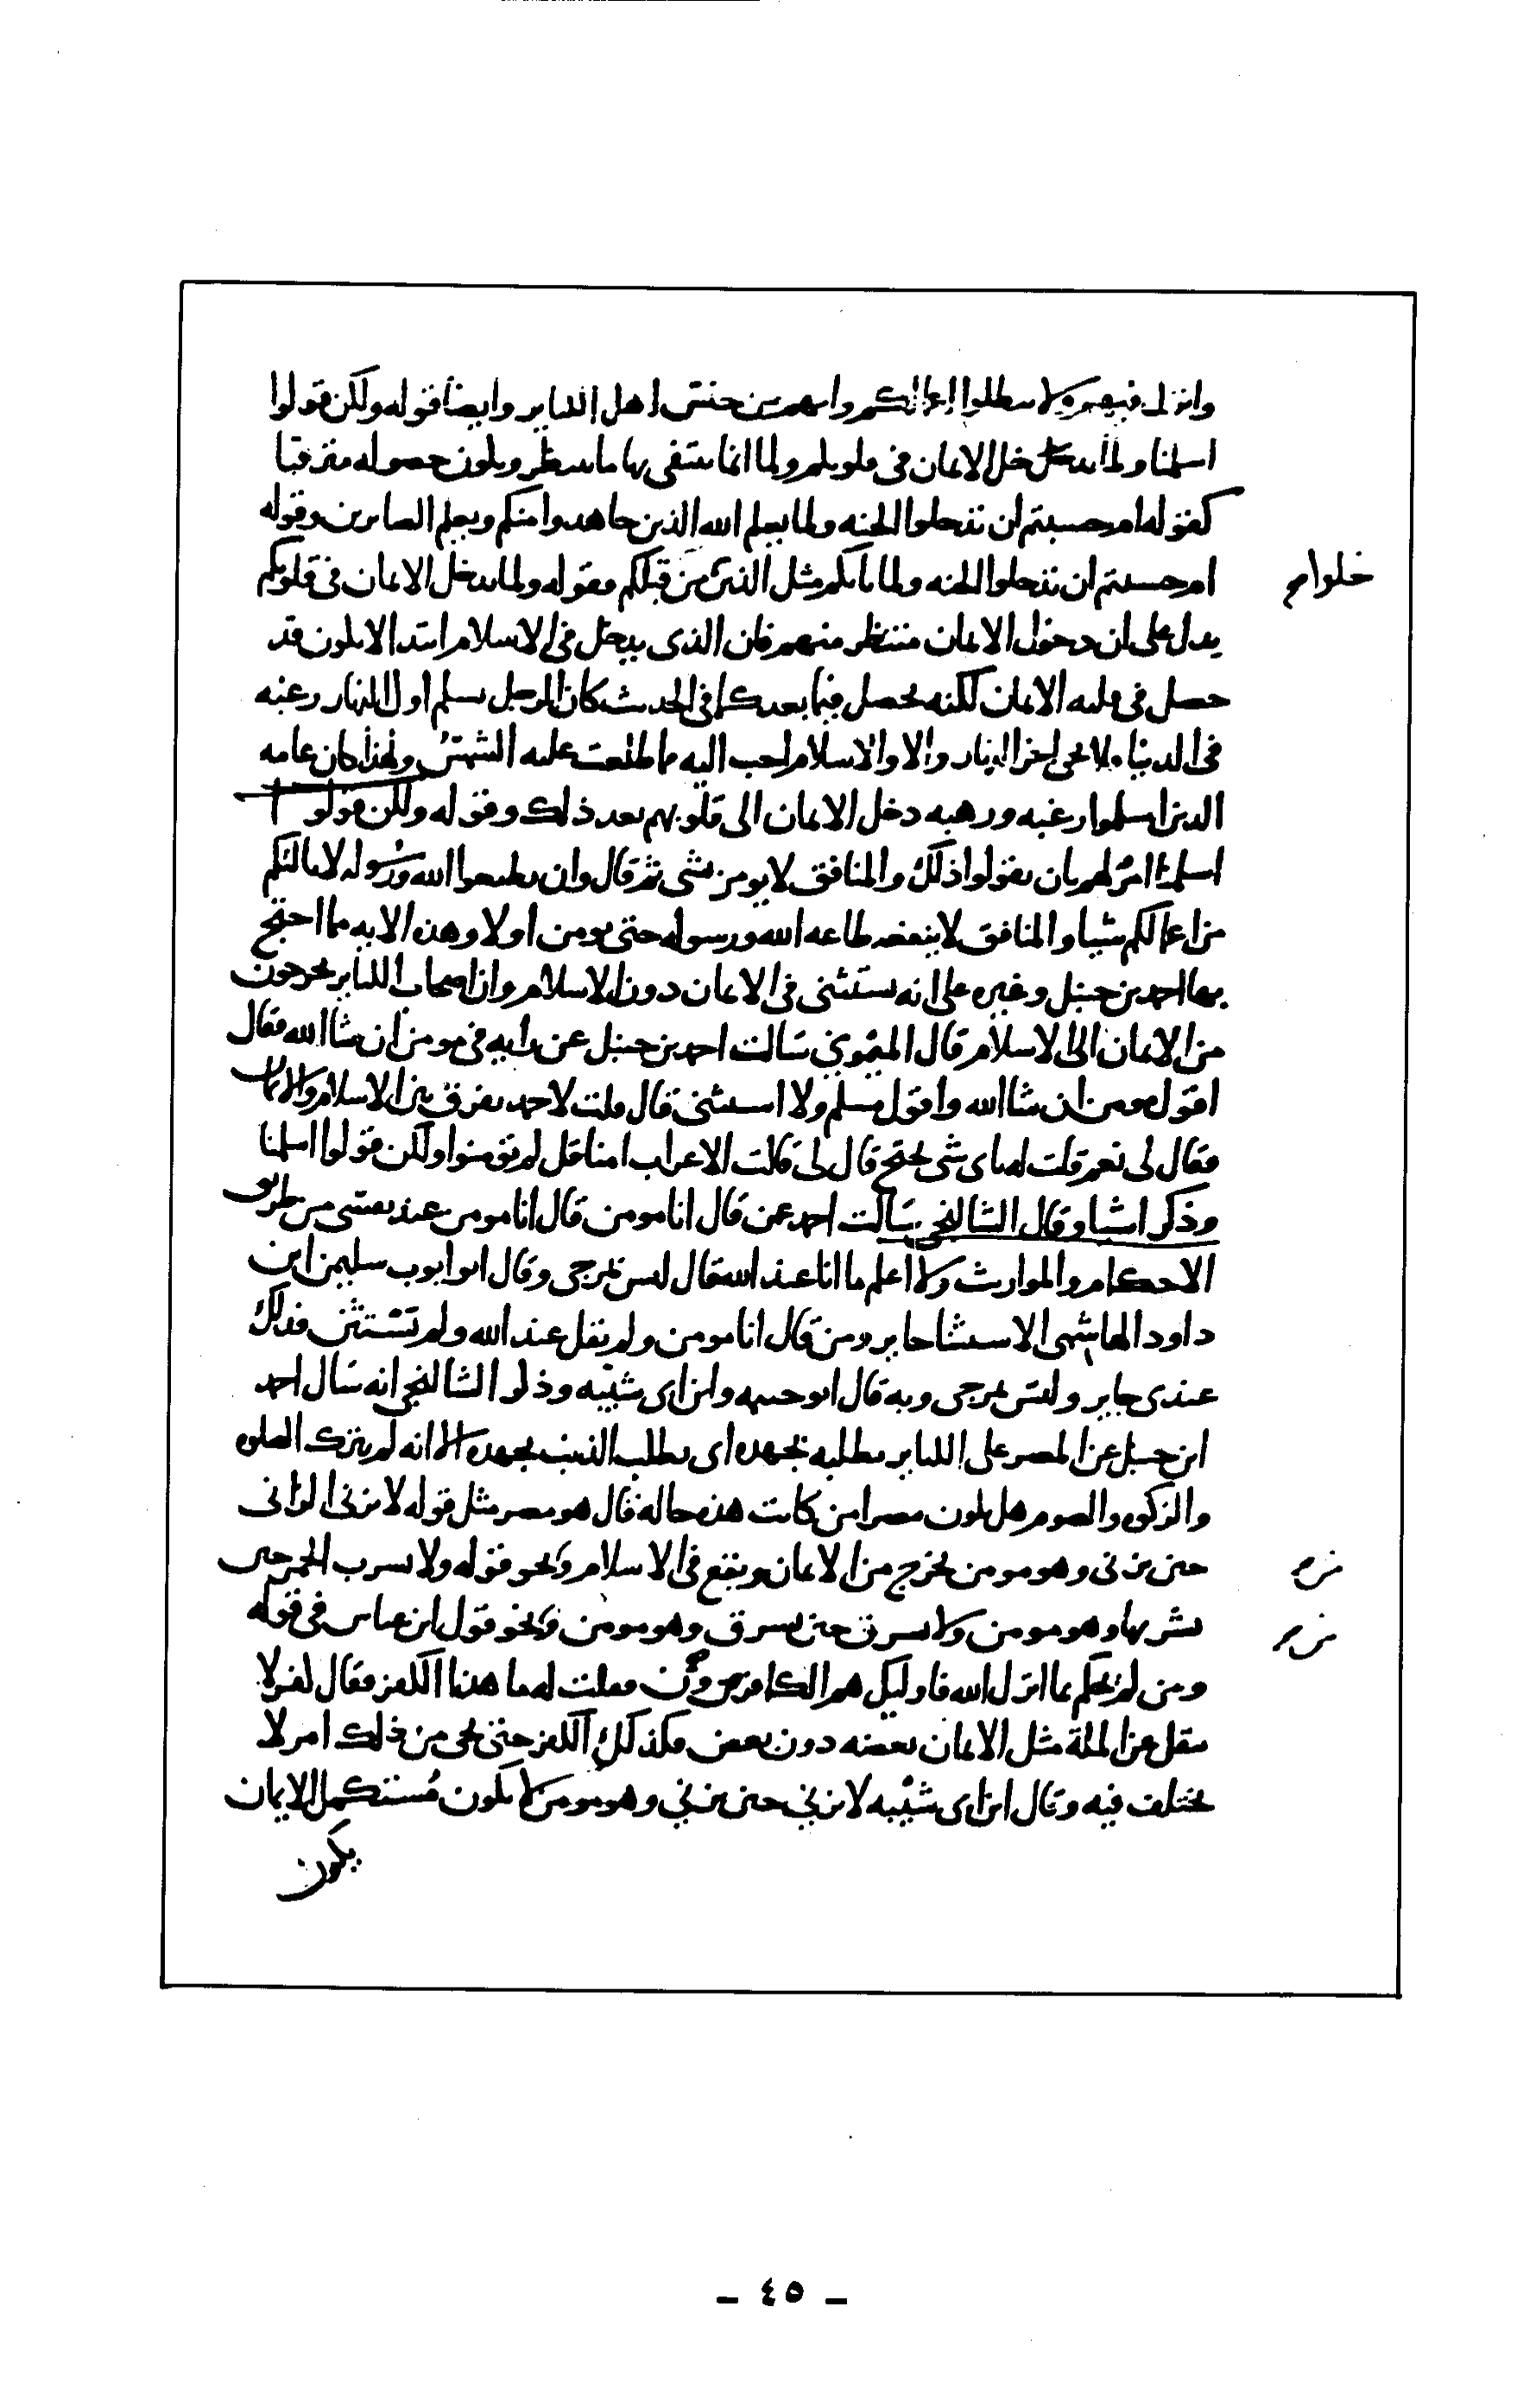 وانزل فيهم ولا تبطلوا اعمالكم وانهم من جنس اهل الكباير وايضا فقوله ولكن قولوا
اسلمنا ولما يدخل الايمان في قلوبكم ولما انما ينتفى بها ما ينتظر ويكون حصوله مترقبا
كقوله ام حسبتم ان تدخلوا الجنه ولما يعلم الله الذين جاهدوا منكم ويعلم الصابرين وقوله
ام حسبتم ان تدخلوا الجنه ولما ياتكم مثل الذين من قبلكم فقوله ولما يدخل الايمان في قلوبكم
خلوا م
يدل على ان دخول الايمان منتظر منهم فان الذي يدخل في الاسلام ابتدا لا يكون قد
حصل في قلبه الايمان لكنه يحصل فيما بعد كما في الحديث كان الرجل يسلم اول النهار رغبه
في الدنيا فلا يجي اخر النهار والا والاسلام احب اليه مما طلعت عليه الشمس ولهذا كان عامه
الذين اسلموا رغبه ورهبه دخل الايمان الى قلوبهم بعد ذلك وقوله ولكن قولوا
اسلمنا امر لهم بان يقولوا ذلك والمنافق لا يومر بشي ثم قال وان تطيعوا الله ورسوله لا يالتكم
من اعمالكم شيا والمنافق لا ينفعه طاعه الله ورسوله حتى يومن اولا وهذه الايه مما احتج
بها احمد بن حنبل وغيره على انه يستثنى في الايمان دون الاسلام وان اصحاب الكباير يخرجون
من الايمان الى الاسلام قال الميموني سالت احمد بن حنبل عن رايه في مومن ان شا الله فقال
اقول مومن ان شا الله واقول مسلم ولا استثنى قال قلت لاحمد يفرق بين الاسلام والايمان
فقال لي نعم قلت له باي شي تحتج قال لي قالت الاعراب امنا قل لم تومنوا ولكن قولوا اسلمنا
وذكر اشيا وقال الشالنجي سالت احمد عن قال انا مومن قال انا مومن عند نفسي من طريق
الاحكام والموارث ولا اعلم ما انا عند الله قال ليس بمرجى وقال ابو ايوب سليمن ابن
داود الهاشمي الاستثنا جايز ومن قال انا مومن ولم يقل عند الله ولم تستثن فذلك
عندي جايز وليس بمرجى وبه قال ابو خيثمه وابن ابي شيبه وذكر الشالنجي انه سال احمد
ابن حنبل عن المصر على الكباير يطلبه بجهده اي يطلب الذنب بجهده الا انه لم يترك الصلوه
والزكوه والصوم هل يكون مصرا من كانت هذه حاله قال هو مصر مثل قوله لا يزني الزاني
حين يزني وهو مومن يخرج من الايمان ويقع في الاسلام ونحو قوله ولا يشرب الخمر حين
يشربها وهو مومن ولا يسرق حين يسرق وهو مومن ونحو قول ابن عباس في قوله
ومن لم يحكم بما انزل الله فاوليك هم الكافرون فقلت له ما هذا الكفر فقال كفر لا
ينقل عن الملة مثل الايمان بعضه دون بعض فكذلك الكفر حتى يجي من ذلك امر لا
يختلف فيه وقال ابن ابي شيبه لا يزني حين يزني وهو مومن لا يكون مستكمل الايمان
يكون
- ٤٥ -